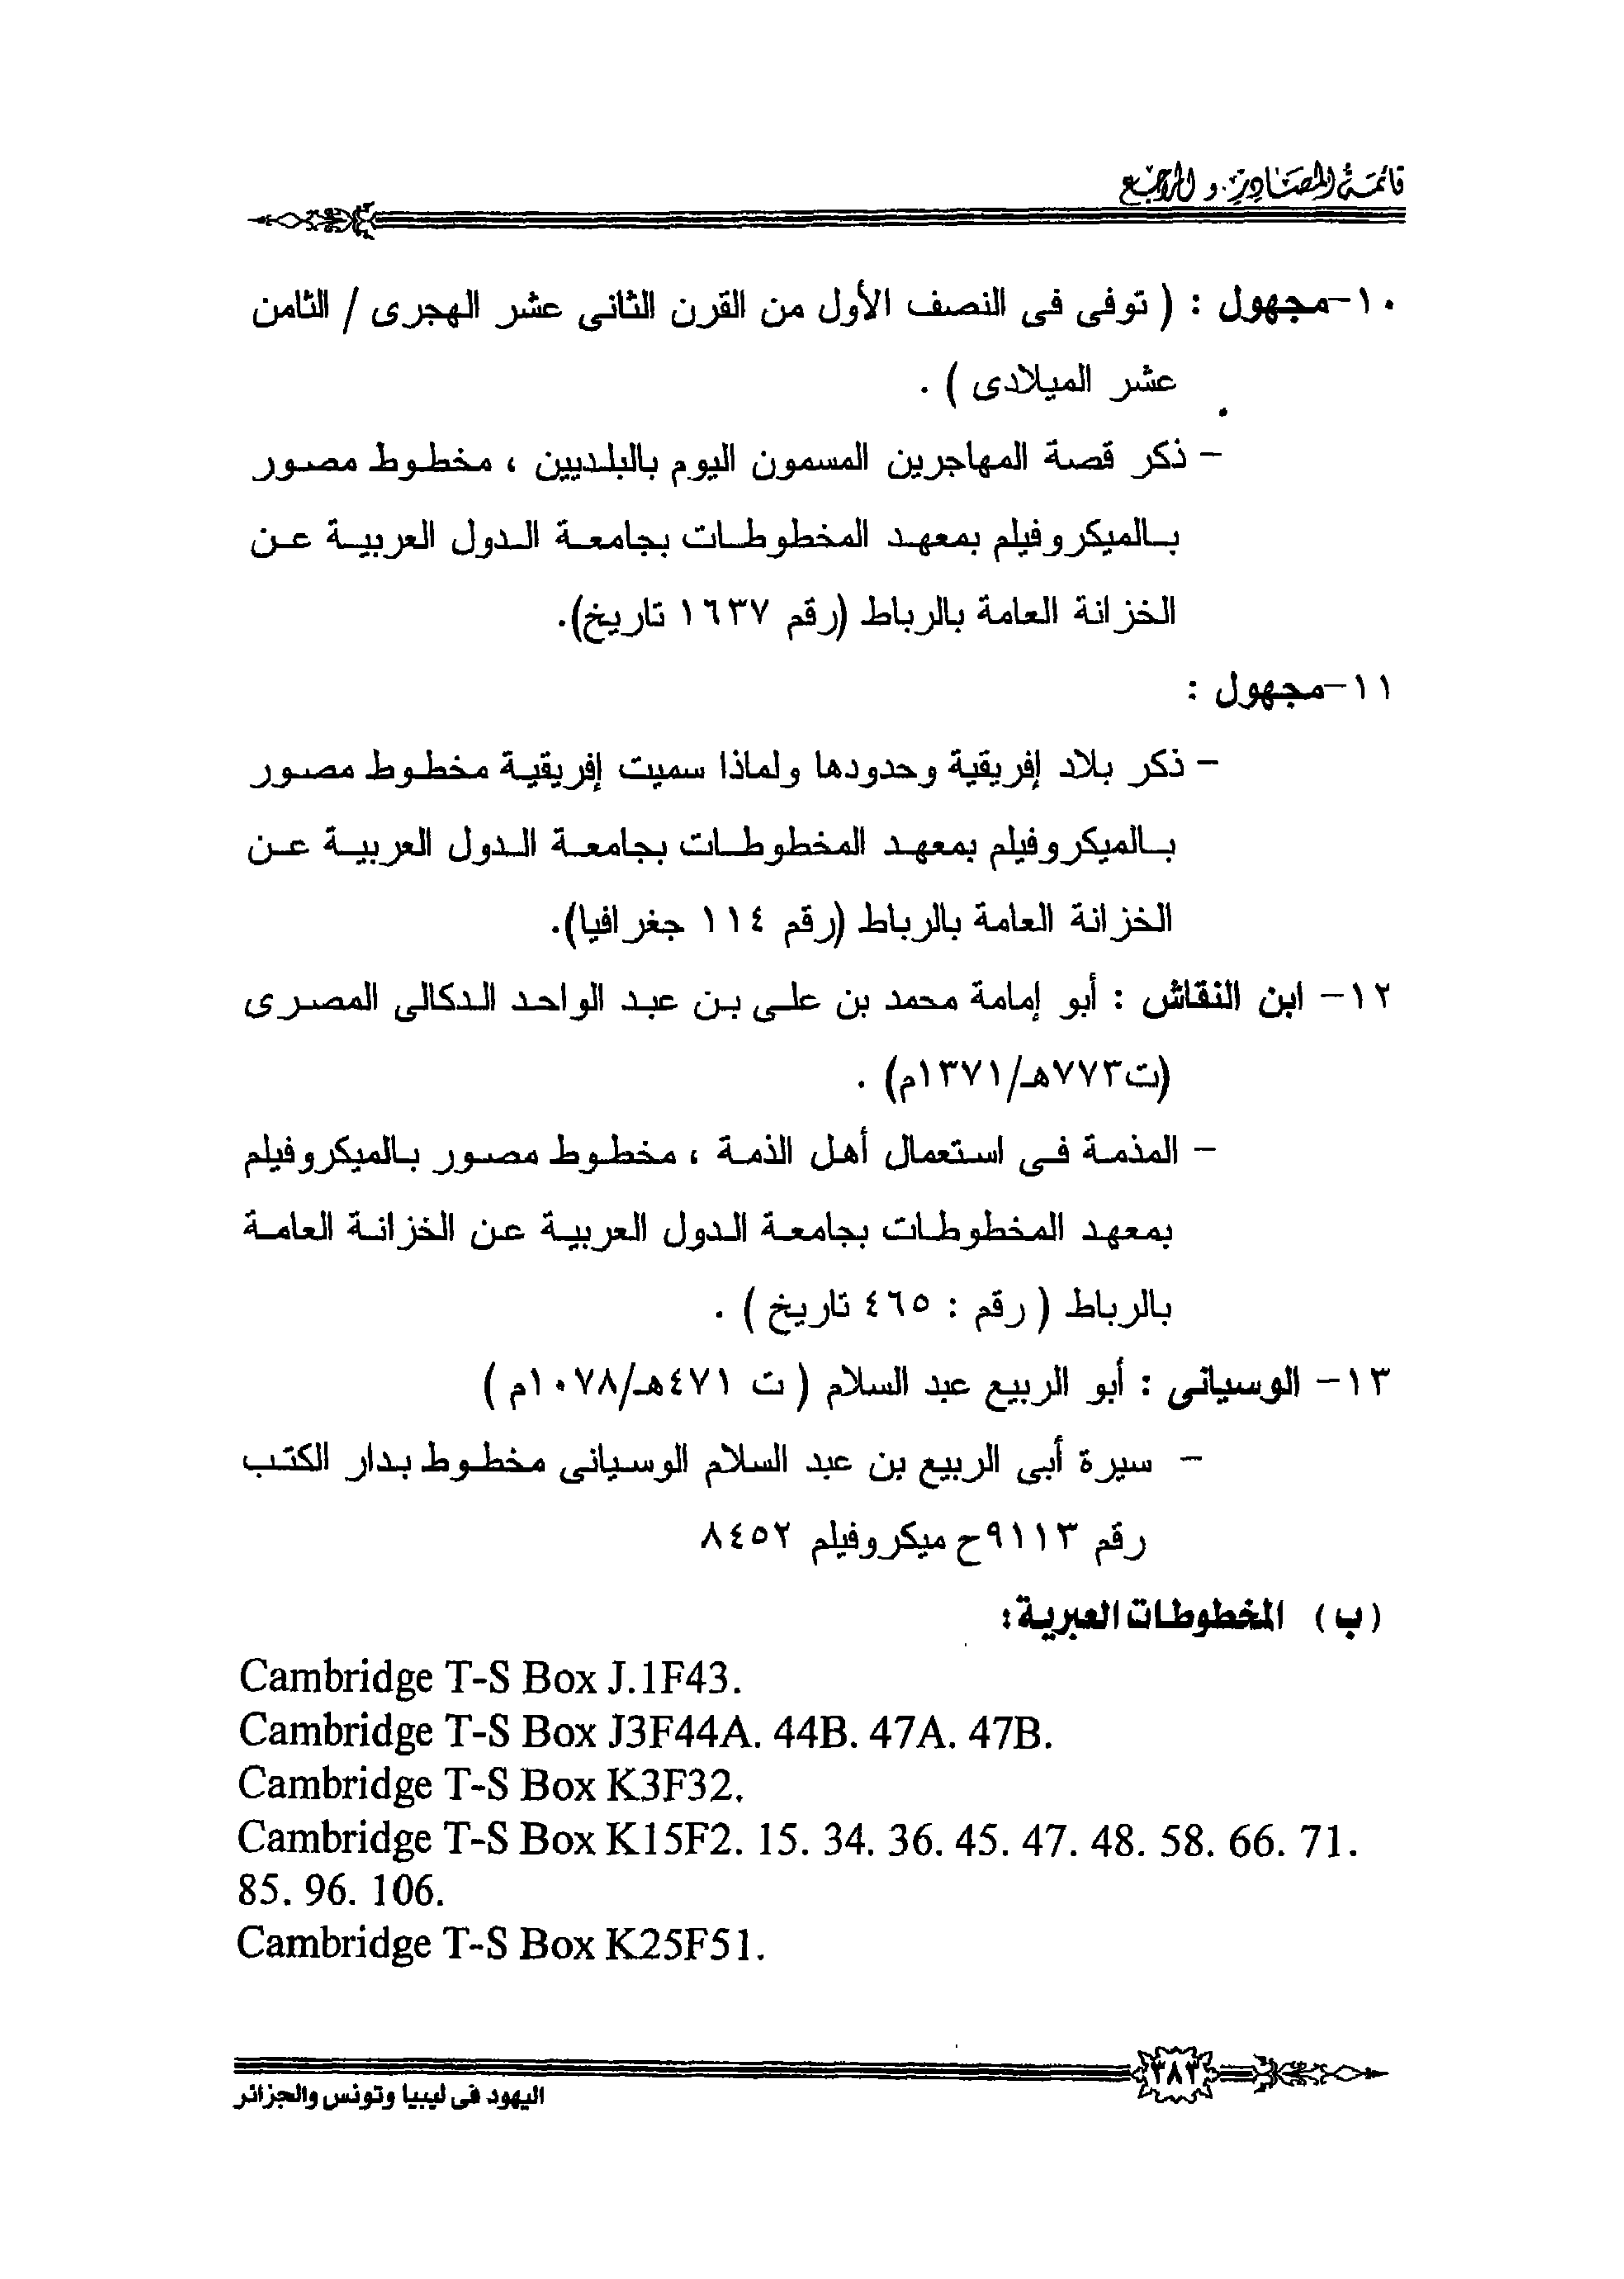 قائمة المصادر و المراجع
١٠-مجهول : ( توفى فى النصف الأول من القرن الثانى عشر الهجرى / الثامن
عشر الميلادى ) .
- ذكر قصة المهاجرين المسمون اليوم بالبلديين ، مخطوط مصور
بالميكروفيلم بمعهد المخطوطات بجامعة الدول العربية عن
الخزانة العامة بالرباط (رقم ١٦٣٧ تاريخ).
١١-مجهول :
- ذكر بلاد إفريقية وحدودها ولماذا سميت إفريقية مخطوط مصور
بالميكروفيلم بمعهد المخطوطات بجامعة الدول العربية عن
الخزانة العامة بالرباط (رقم ١١٤ جغرافيا).
١٢- ابن النقاش : أبو إمامة محمد بن على بن عبد الواحد الدكالى المصرى
(ت٧٧٣هـ/١٣٧١م) .
- المذمة فى استعمال أهل الذمة ، مخطوط مصور بالميكروفيلم
بمعهد المخطوطات بجامعة الدول العربية عن الخزانة العامة
بالرباط ( رقم : ٤٦٥ تاريخ ) .
١٣- الوسيانى : أبو الربيع عبد السلام ( ت ٤٧١هـ/١٠٧٨م )
- سيرة أبى الربيع بن عبد السلام الوسيانى مخطوط بدار الكتب
رقم ٩١١٣ح ميكروفيلم ٨٤٥٢
(ب) المخطوطات العبرية:
Cambridge T-S Box J.1F43.
Cambridge T-S Box J3F44A. 44B. 47A. 47B.
Cambridge T-S Box K3F32.
Cambridge T-S Box K15F2. 15. 34. 36. 45. 47. 48. 58. 66. 71.
85. 96. 106.
Cambridge T-S Box K25F51.
٣٨٣
اليهود فى ليبيا وتونس والجزائر